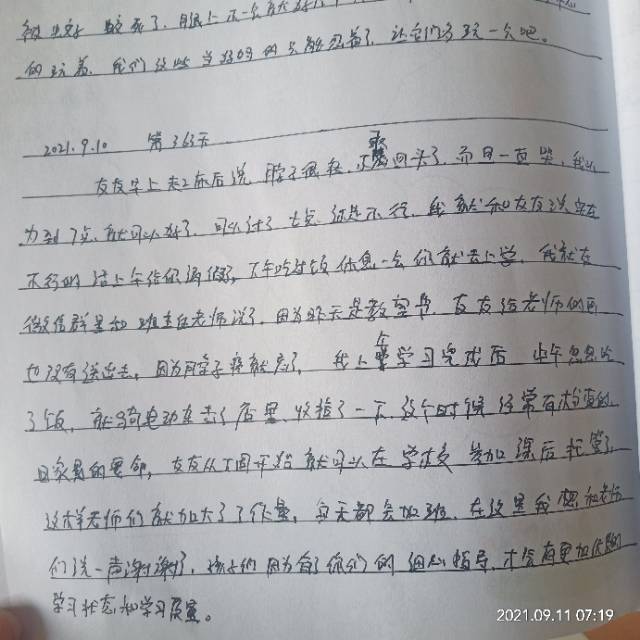 的玩着,我们这些当妈的只能忍着了,让它们多玩一会吧。
2021.9.10 第363天
友友早上起床后说脖子很轻,不敢回头了,而且一直哭,我以
为到7点就可以好了,可以过了七点还是不行,我就和友友说实在
不行的话上午给你请假了,下午吃过饭休息一会你就去上学,我就在
微信群里和班主任老师说了,因为昨天是教师节,友友给老师的画
也没有送出去,因为脖子疼就忘了,我上午学习完成后,中午忽忽吃
了饭,就骑电动车去了店里,收拾了一下,这个时候经常有
友友从下周开始就可以在学校参加课后托管了
这样老师们就加大了工作量,每天都会加班,在这里我想和老师
们说一声谢谢了,孩子们因为有了你们的细心指导,才会有更加优越的
学习状态和学习质量。
2021.09.11 07:19